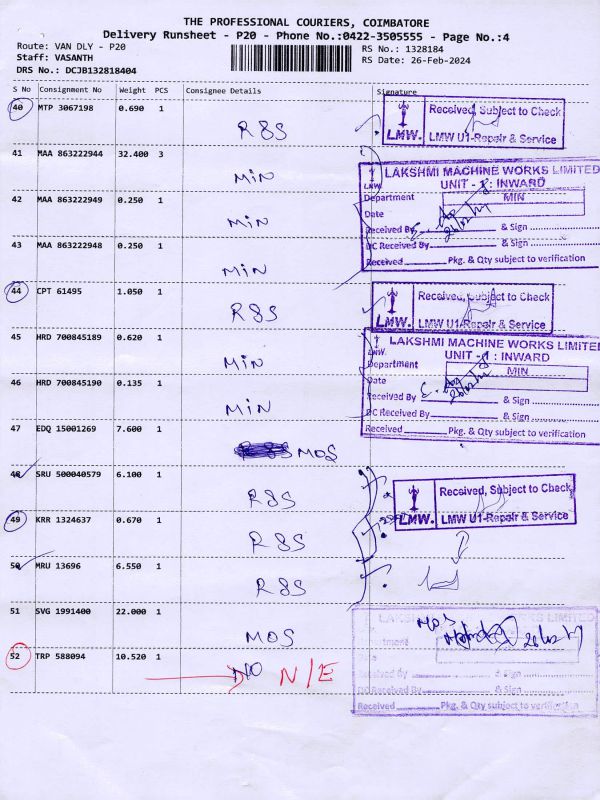 THE PROFESSIONAL COURIERS, COIMBATORE
Delivery Runsheet - P20 - Phone No.:0422-3505555 - Page No.:4
Route: VAN DLY - P20
RS No.: 1328184
Staff: VASANTH
RS Date: 26-Feb-2024
DRS No.: DCJB132818404
S No Consignment No Weight PCS Consignee Details Signature
40 MTP 3067198 0.690 1 R&S
Received, Subject to Check
LMW. LMW U1-Repair & Service
41 MAA 863222944 32.400 3 MIN
LAKSHMI MACHINE WORKS LIMITED
UNIT - 1 : INWARD
LMW.
Department MIN
Date
Received By & Sign
DC Received By & Sign
Received Pkg. & Qty subject to verification
42 MAA 863222949 0.250 1 MIN
43 MAA 863222948 0.250 1 MIN
44 CPT 61495 1.050 1 R&S
Received, Subject to Check
LMW. LMW U1-Repair & Service
45 HRD 700845189 0.620 1 MIN
LAKSHMI MACHINE WORKS LIMITED
UNIT - 1 : INWARD
LMW.
Department MIN
Date
Received By & Sign
DC Received By & Sign
Received Pkg. & Qty subject to verification
46 HRD 700845190 0.135 1 MIN
47 EDQ 15001269 7.600 1 MOS
48 SRU 500040579 6.100 1 R&S
Received, Subject to Check
LMW. LMW U1-Repair & Service
49 KRR 1324637 0.670 1 R&S
50 MRU 13696 6.550 1 R&S
51 SVG 1991400 22.000 1 MOS
LAKSHMI MACHINE WORKS LIMITED
MOS
Date
Received By & Sign
DC Received By & Sign
Received Pkg. & Qty subject to verification
52 TRP 588094 10.520 1 N/E